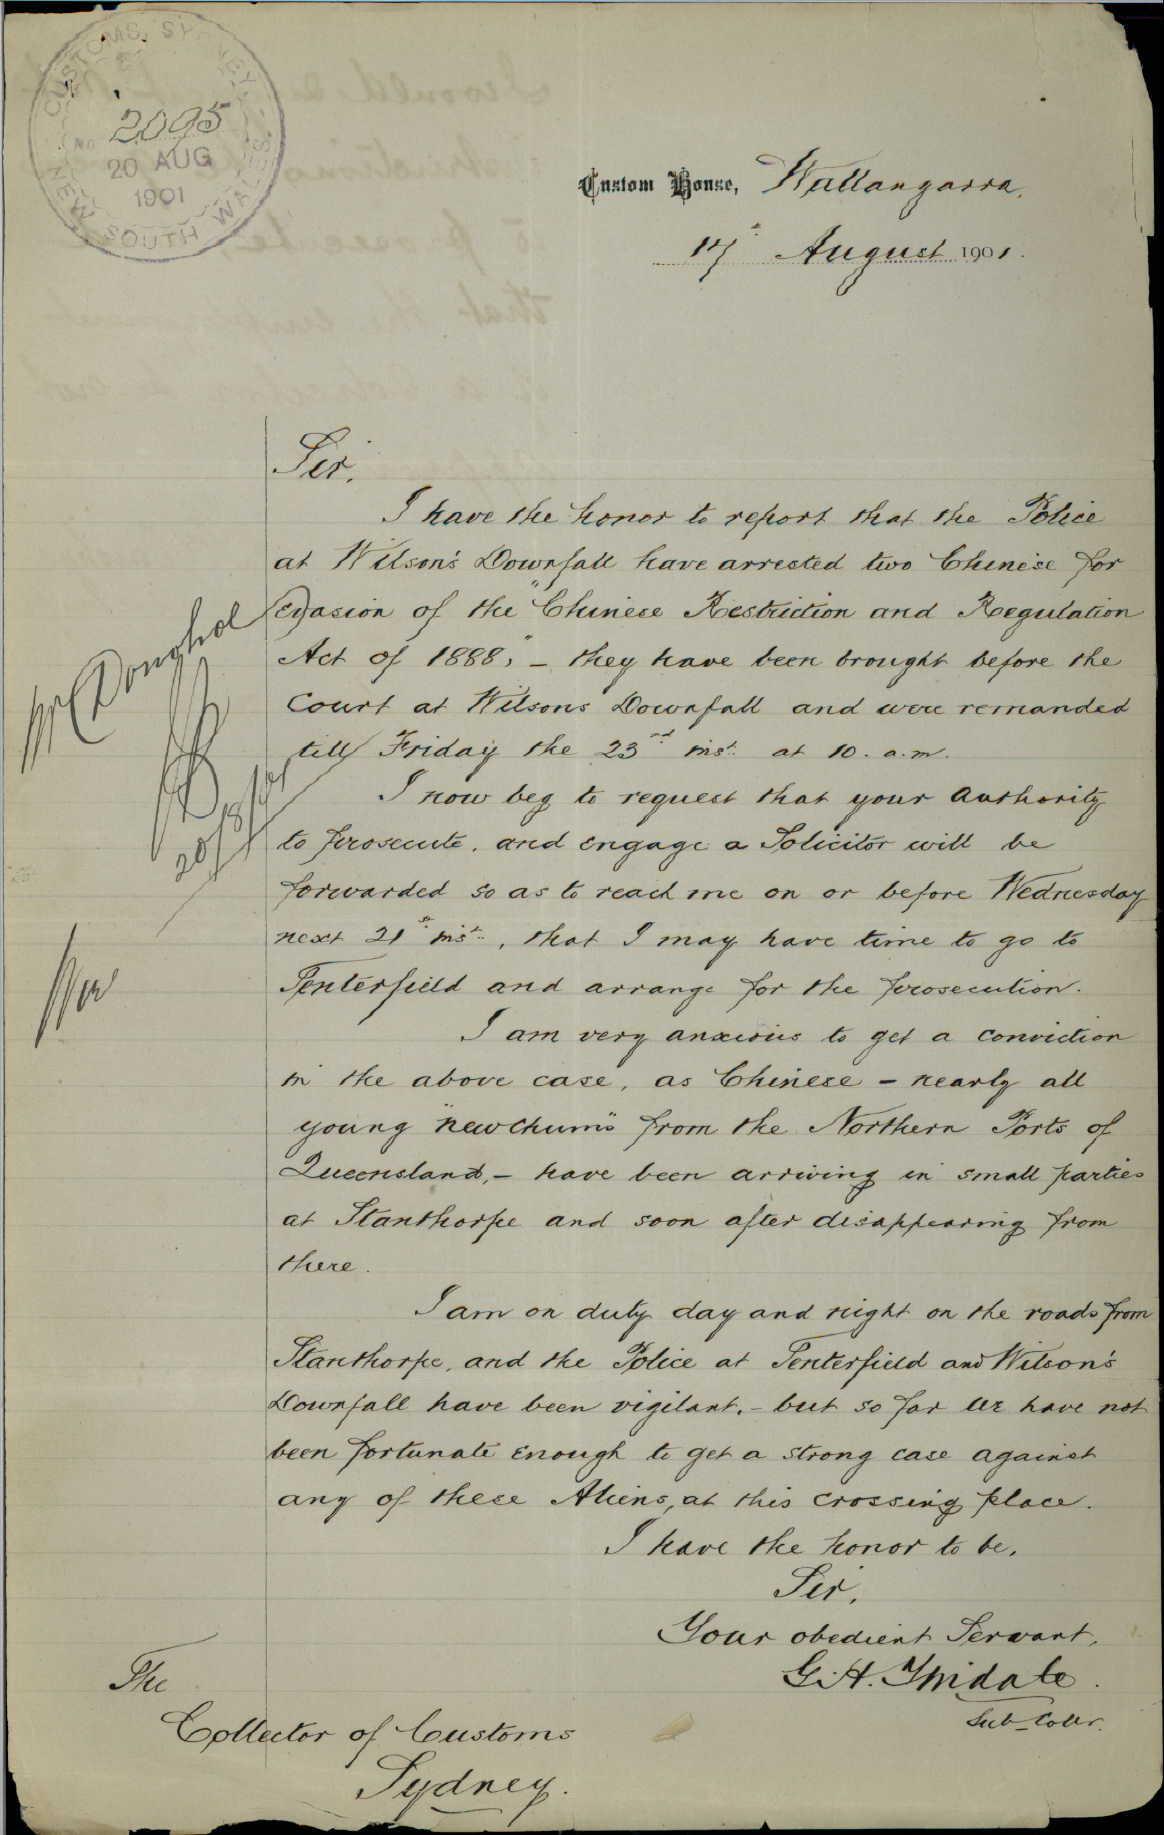 CUSTOMS, SYDNEY
No 2095
20 AUG
1901
NEW SOUTH WALES
Custom House, Wallangarra.
17th August 1901.
Sir,
I have the honor to report that the Police
at Wilson's Downfall have arrested two Chinese for
evasion of the "Chinese Restriction and Regulation
Act of 1888," – they have been brought before the
Court at Wilsons Downfall and were remanded
till Friday the 23rd inst. at 10. a.m.
I now beg to request that your authority
to prosecute, and engage a Solicitor will be
forwarded so as to reach me on or before Wednesday
next 21st inst., that I may have time to go to
Tenterfield and arrange for the prosecution.
I am very anxious to get a conviction
in the above case, as Chinese – nearly all
young "new chums" from the Northern Ports of
Queensland, – have been arriving in small parties
at Stanthorpe and soon after disappearing from
there.
I am on duty day and night on the roads from
Stanthorpe, and the Police at Tenterfield and Wilson's
Downfall have been vigilant. – but so far we have not
been fortunate enough to get a strong case against
any of these Aliens, at this crossing place.
I have the honor to be,
Sir,
Your obedient Servant,
G. H. Tindale.
Sub-Collr.
The
Collector of Customs
Sydney.
Mr Donohoe
20/8/01